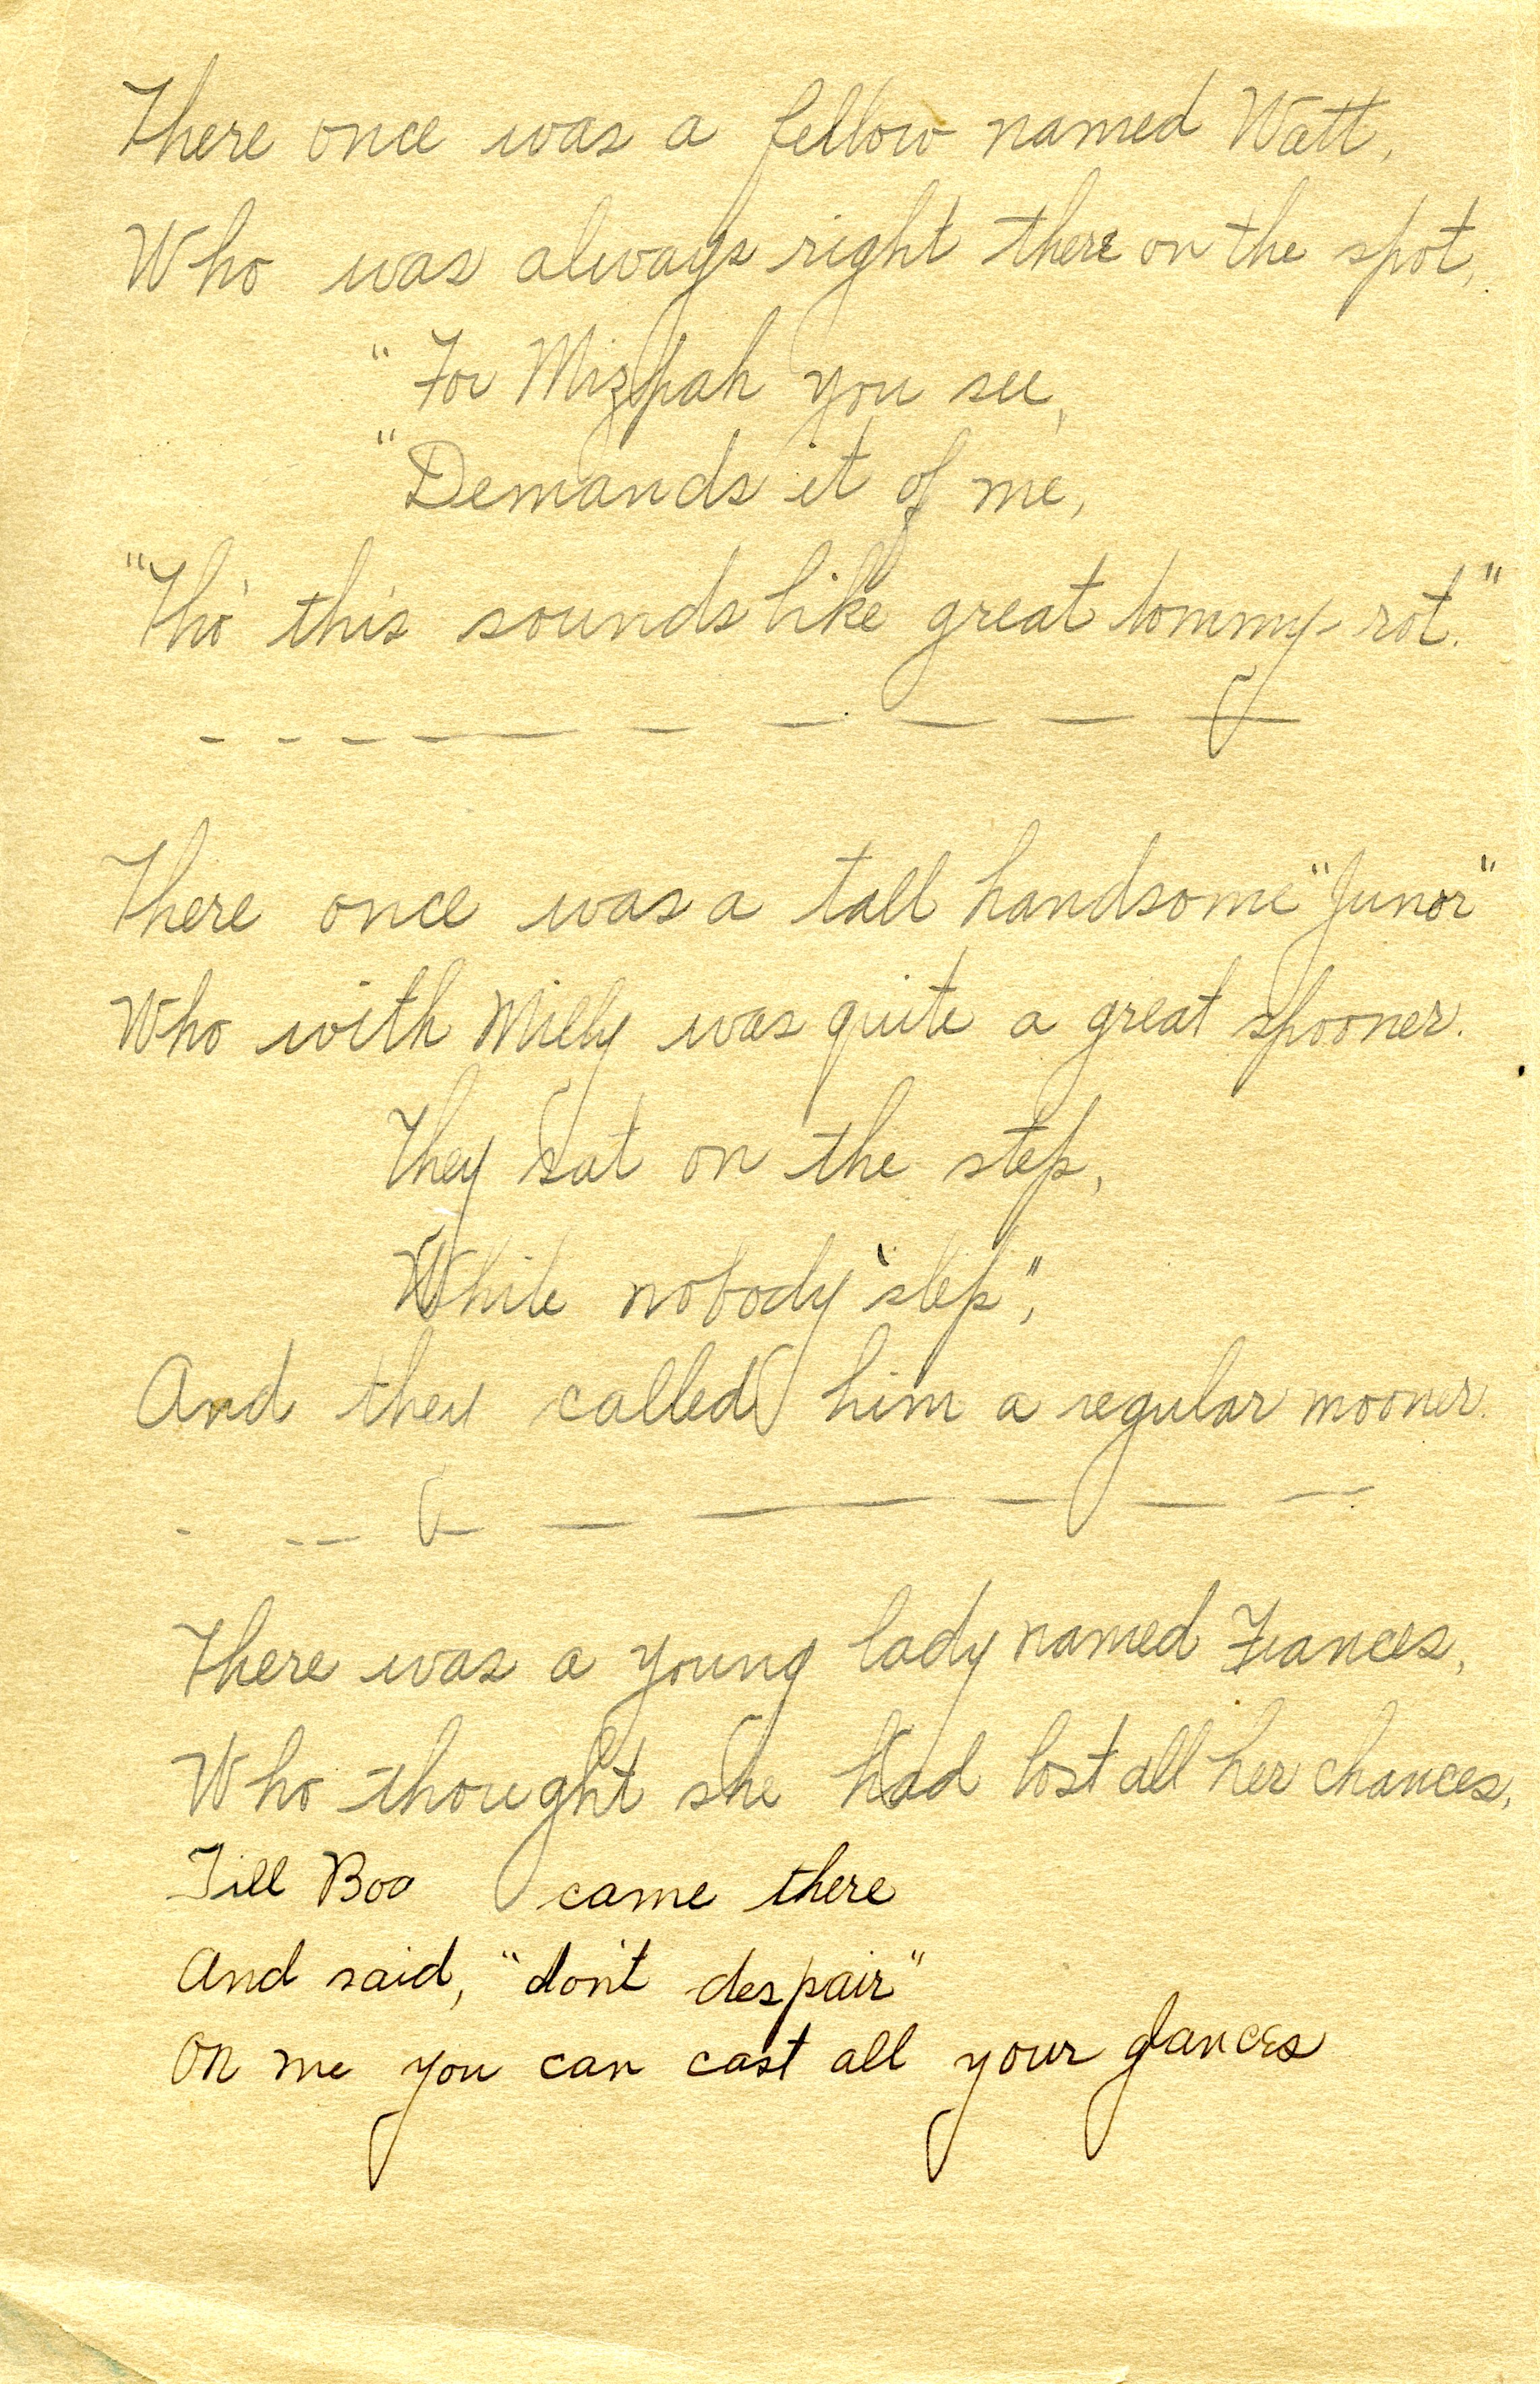 There once was a fellow named Watt,
Who was always right there on the spot,
"For Mizpah you see,
"Demands it of me,
"Tho' this sounds like great tommy-rot."
There once was a tall handsome "Junor"
Who with Milly was quite a great spooner.
They sat on the step,
While nobody "slep",
And they called him a regular mooner.
There was a young lady named Frances,
Who thought she had lost all her chances,
Till Boo came there
And said, "don't despair"
On me you can cast all your glances